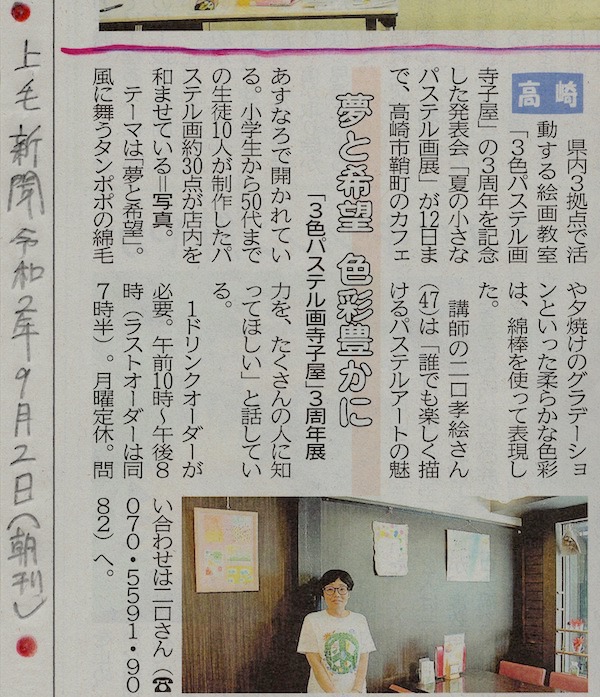 上毛新聞令和2年9月2日(朝刊)
高崎
夢と希望 色彩豊かに
「3色パステル画寺子屋」3周年展
県内3拠点で活
動する絵画教室
「3色パステル画
寺子屋」の3周年を記念
した発表会「夏の小さな
パステル画展」が12日ま
で、高崎市鞘町のカフェ
あすなろで開かれてい
る。小学生から50代まで
の生徒10人が制作したパ
ステル画約30点が店内を
和ませている=写真。
テーマは「夢と希望」。
風に舞うタンポポの綿毛
や夕焼けのグラデーショ
ンといった柔らかな色彩
は、綿棒を使って表現し
た。
講師の二口孝絵さん
(47)は「誰でも楽しく描
けるパステルアートの魅
力を、たくさんの人に知
ってほしい」と話してい
る。
1ドリンクオーダーが
必要。午前10時~午後8
時(ラストオーダーは同
7時半)。月曜定休。問
い合わせは二口さん(☎
070・5591・90
82)へ。